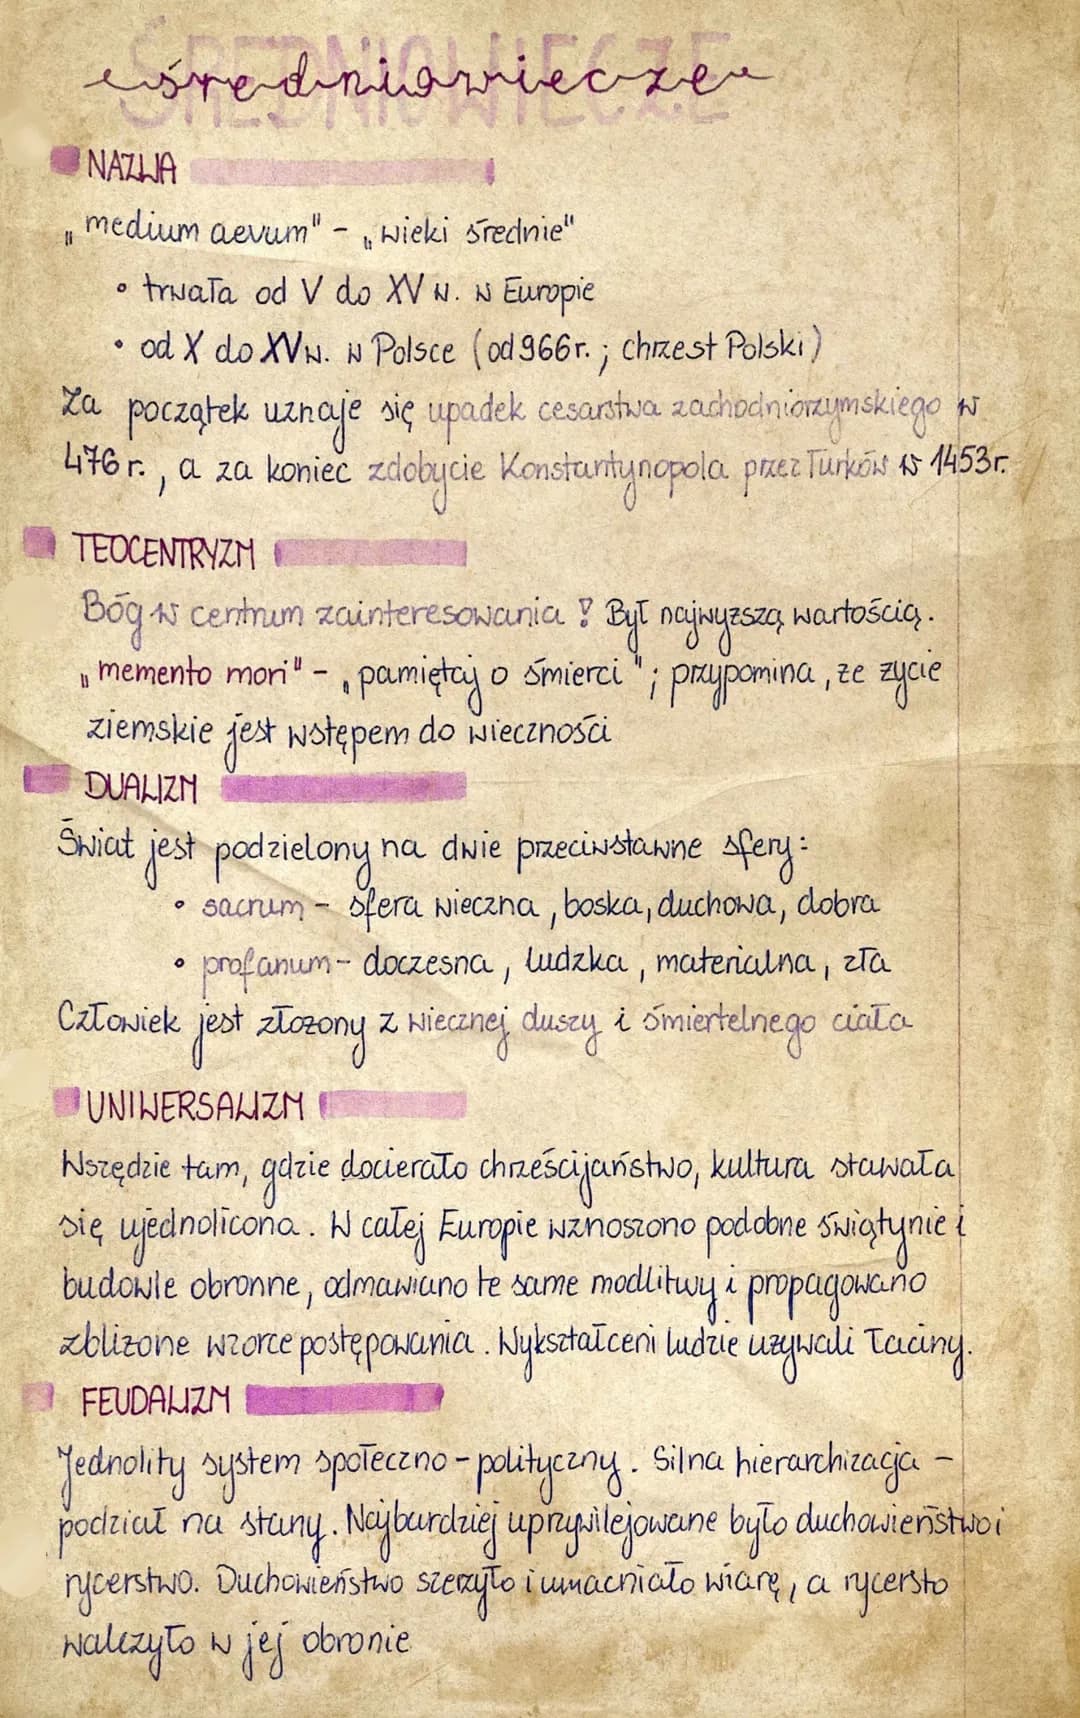 ŚREDNIOWIECZE
średniowiecze
NAZWA
„medium aevum" - „wieki średnie"
• trwała od V do XV w. w Europie
• od X do XV w. w Polsce (od 966r. ; chrzest Polski)
Za początek uznaje się upadek cesarstwa zachodniorzymskiego w
476 r., a za koniec zdobycie Konstantynopola przez Turków w 1453r.
TEOCENTRYZM
Bóg w centrum zainteresowania! Był najwyższą wartością.
„memento mori" - „pamiętaj o śmierci"; przypomina, że życie
ziemskie jest wstępem do wieczności
DUALIZM
Świat jest podzielony na dwie przeciwstawne sfery:
• sacrum - sfera wieczna, boska, duchowa, dobra
• profanum - doczesna, ludzka, materialna, zła
Człowiek jest złożony z wiecznej duszy i śmiertelnego ciała
UNIWERSALIZM
Wszędzie tam, gdzie docierało chrześcijaństwo, kultura stawała
się ujednolicona. W całej Europie wznoszono podobne świątynie i
budowle obronne, odmawiano te same modlitwy i propagowano
zbliżone wzorce postępowania. Wykształceni ludzie używali łaciny.
FEUDALIZM
Jednolity system społeczno-polityczny. Silna hierarchizacja -
podział na stany. Najbardziej uprzywilejowane było duchowieństwo i
rycerstwo. Duchowieństwo szerzyło i umacniało wiarę, a rycersto
walczyło w jej obronie